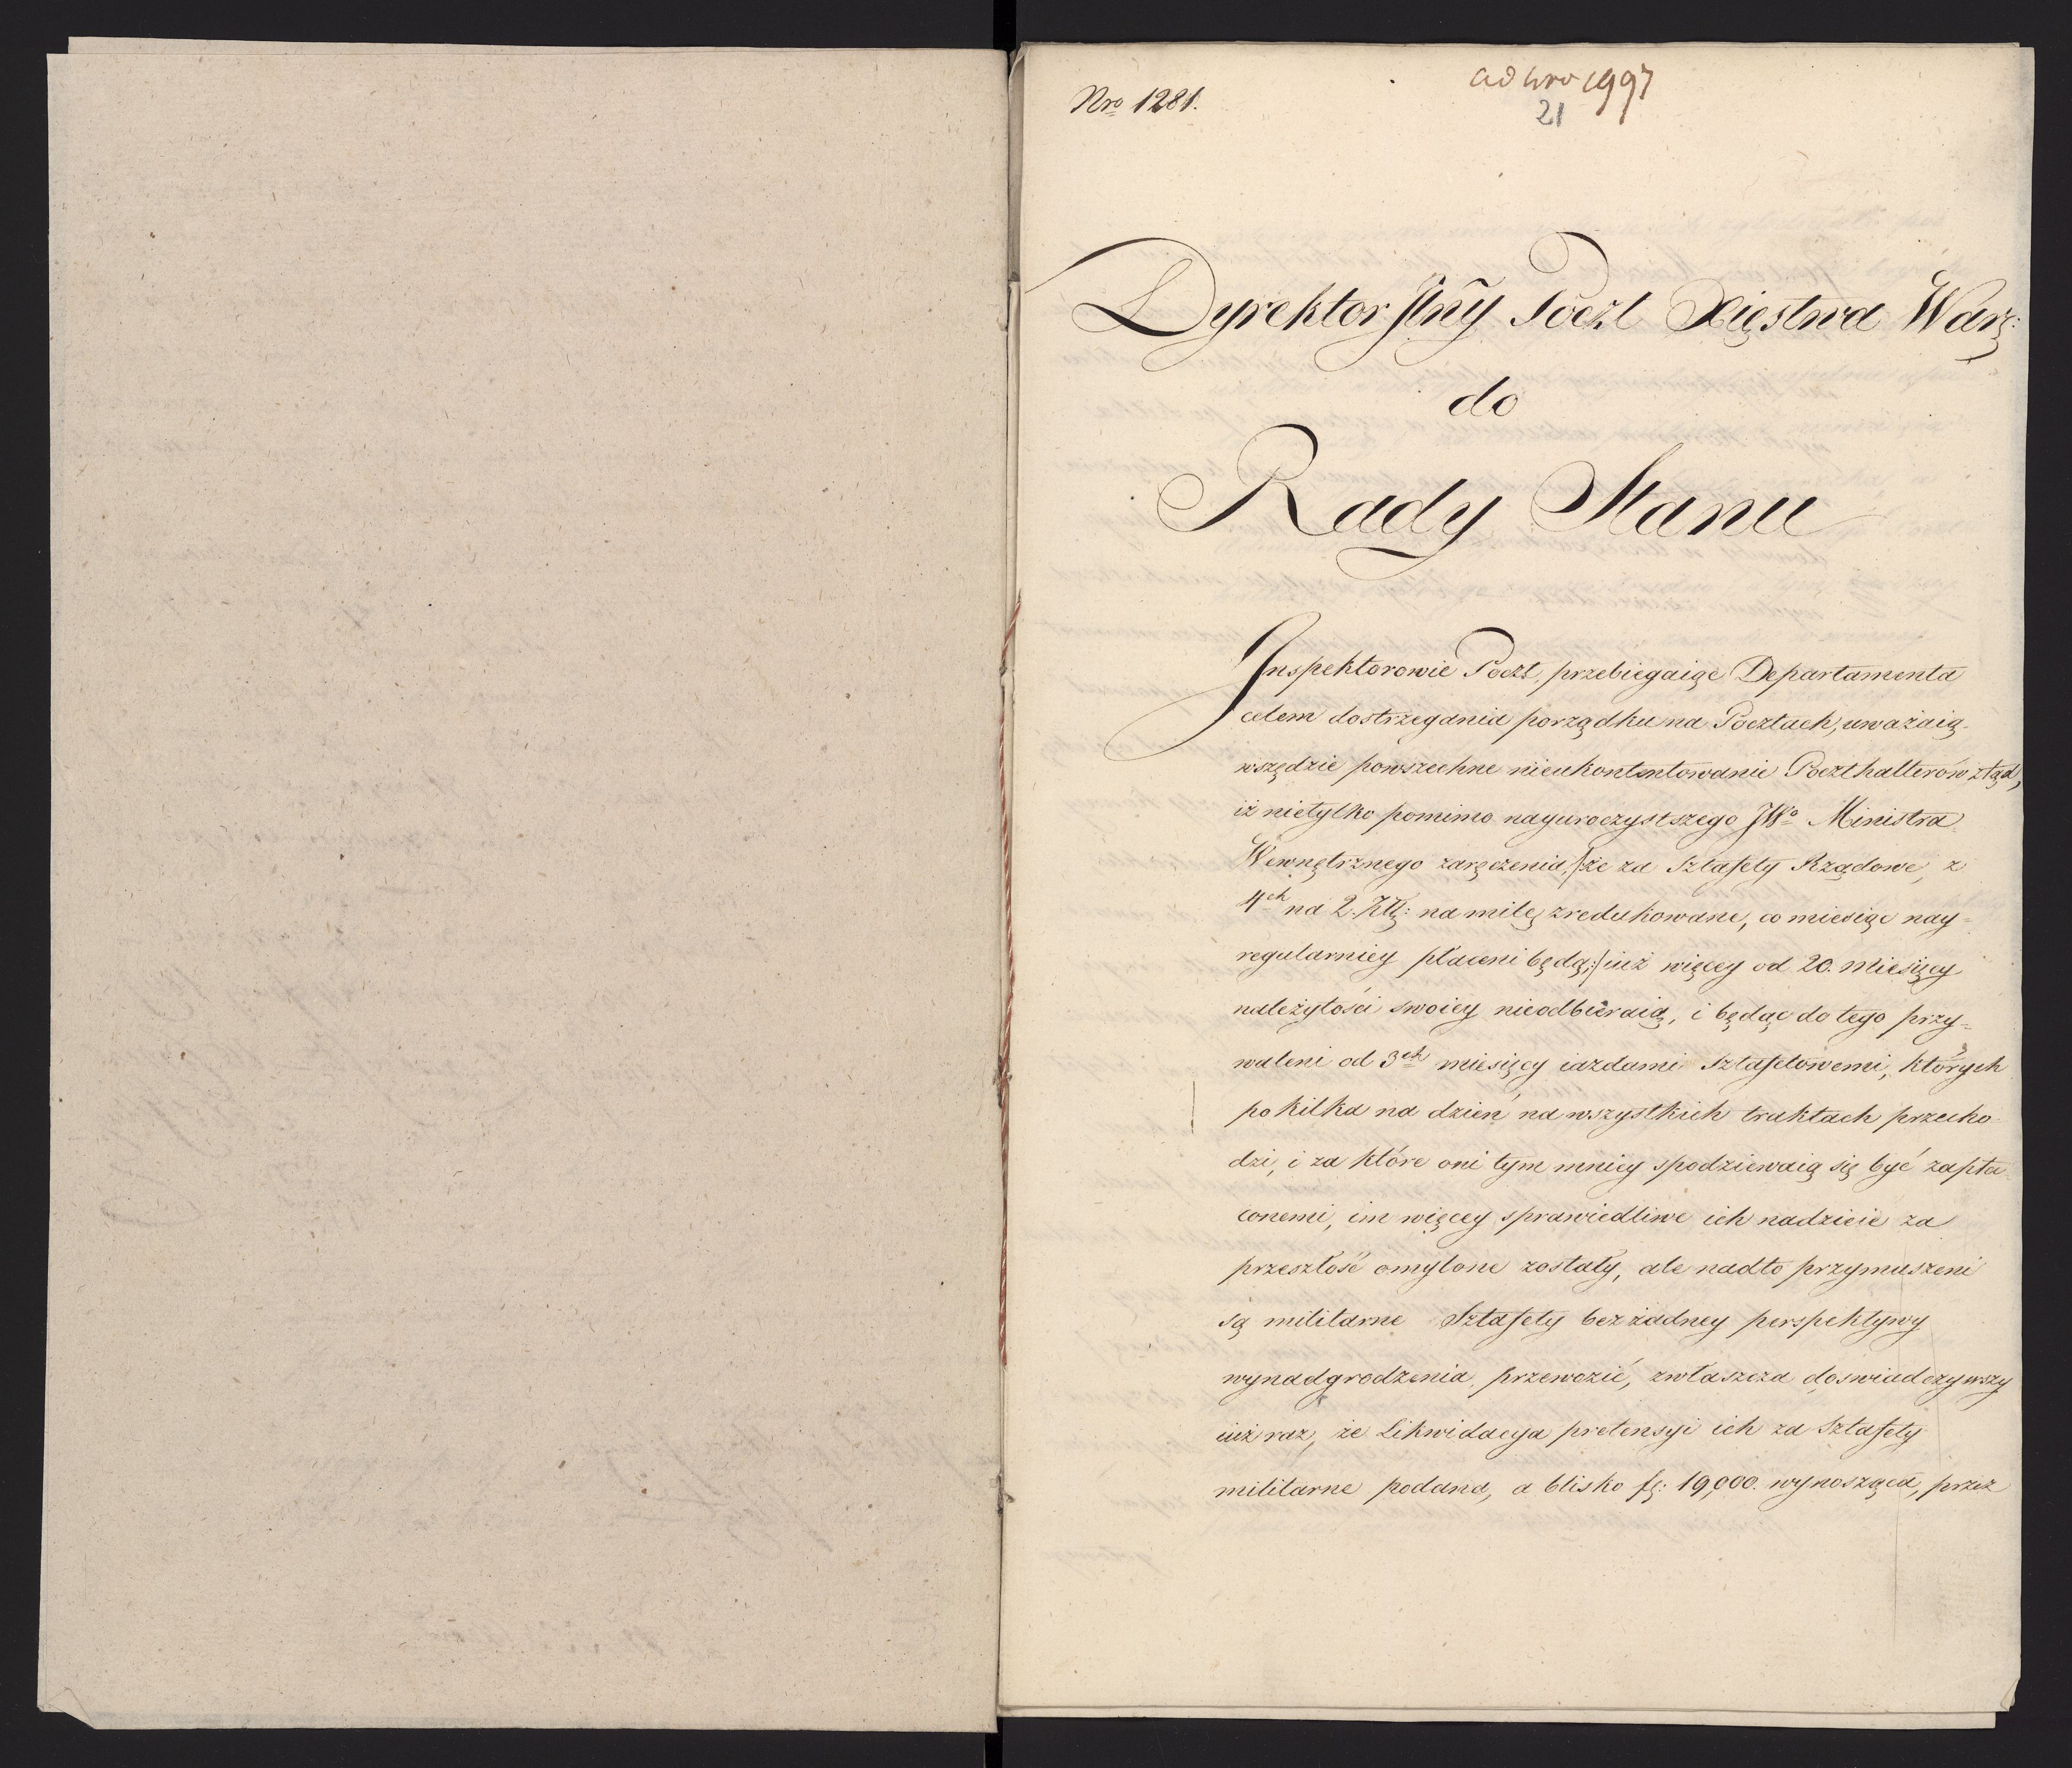 Nro 1281.
ad Nro 1997
21
Dyrektor Jlny Poczt Xięstwa Warz:
do
Rady Stanu
Inspektorowie Poczt, przebiegaiąc Departamenta
celem dostrzegania porządku na Pocztach, uważaią
wszędzie powszechne nieukontentowanie Poczthalterów ztąd,
iż nietylko pomimo nayuroczystszego JWo Ministra
Wewnętrznego zaręczenia, /:że za Sztafety Rządowe, z
4ch na 2. Złł: na milę zredukowane, co miesiąc nay-
regularniey płaceni będą;:/ iuż więcey od 20. Miesięcy
należytości swoiey nieodbieraią, i będąc do tego przy-
waleni od 3ch miesięcy iazdami Sztafetowemi, których
po kilka na dzień na wszystkich traktach przecho-
dzi, i za które oni tym mniey spodziewaią się być zapła-
conemi, im więcey sprawiedliwe ich nadzieie za
przeszłość omylone zostały, ale nadto przymuszeni
są militarne Sztafety bez żadney perspektywy
wynadgrodzenia przewozić, zwłaszcza doswiadczywszy
iuż raz, że Likwidacya pretensyi ich za Sztafety
militarne podana, a blisko fl: 19,000. wynosząca, przez